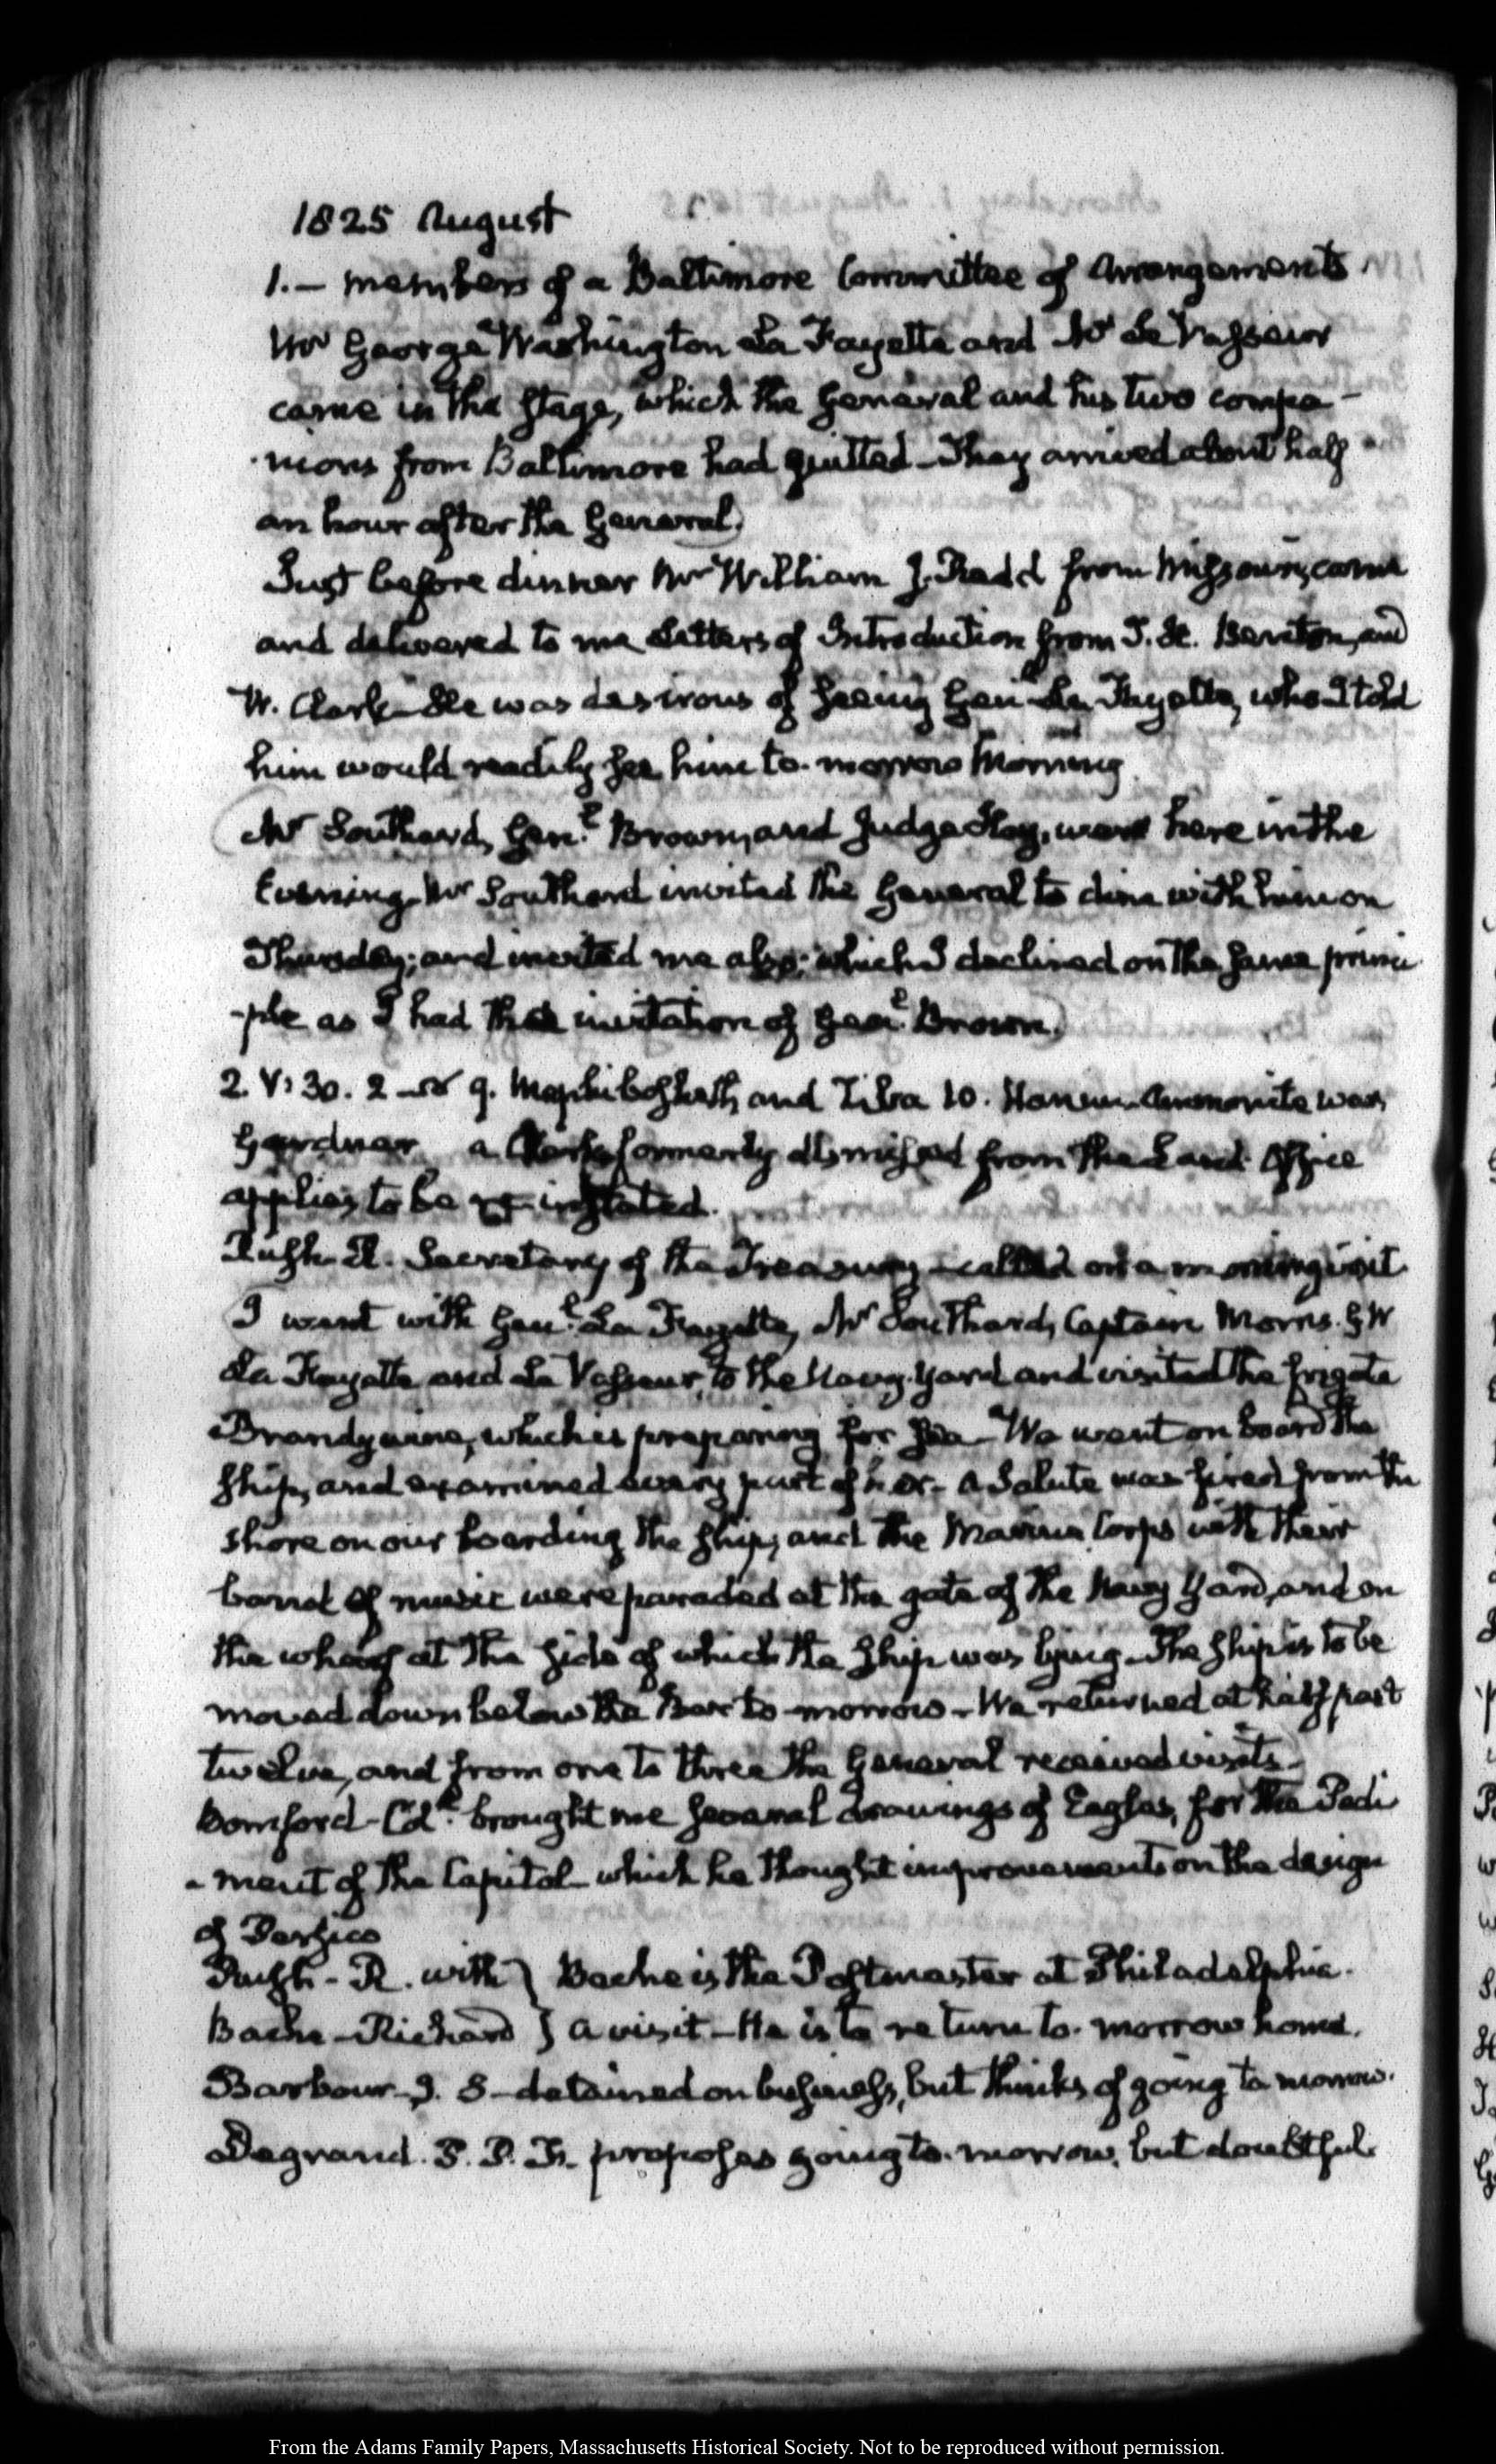 1825 August
1.— members of a Baltimore Committee of Arrangements.
Mr George Washington La Fayette and Mr Le Vasseur
came in the stage, which the General and his two compa-
-nions from Baltimore had quitted—They arrived about half
an hour after the General.
Just before dinner Mr William J. Redd from Missouri, came
and delivered to me Letters of Introduction from T. H. Benton, and
W. Clark—He was desirous of seeing Genl La Fayette, who I told
him would readily see him to-morrow Morning.
Mr Southard, Genl. Brown, and Judge Hay, were here in the
Evening. Mr Southard invited the General to dine with him on
Thursday; and invited me also; which I declined on the same princi
-ple as I had the invitation of Genl. Brown.
2. V: 30. 2 9. Mephibosheth, and Ziba 10. Hanun Ammonite war,
Gardner a Clerk formerly dismissed from the Land Office
applies to be re-instated.
Rush. R. Secretary of the Treasury—called on a morning visit
I went with Genl. La Fayette, Mr Southard, Captain Morris. G W
La Fayette and Le Vasseur, to the Navy-Yard and visited the frigate
Brandywine, which is preparing for sea—We went on board the
ship, and examined every part of her—A Salute was fired from the
shore on our boarding the ship, and the Marine Corps with their
band of music were paraded at the gate of the Navy Yard, and on
the wharf at the side of which the ship was lying—The ship is to be
moved down below the Bar to-morrow—We returned at half past
twelve, and from one to three the General received visits—
Bomford—Coll. brought me several drawings of Eagles, for the Pedi
-ment of the Capitol—which he thought improvements on the design
of Persico
Rush—R. with } Bache is the Postmaster at Philadelphia.
Bache—Richard } a visit—He is to return to-morrow home.
Barbour—J. S—detained on business, but thinks of going to morrow.
Degrand. P. P. F. proposes going to-morrow, but doubtful.